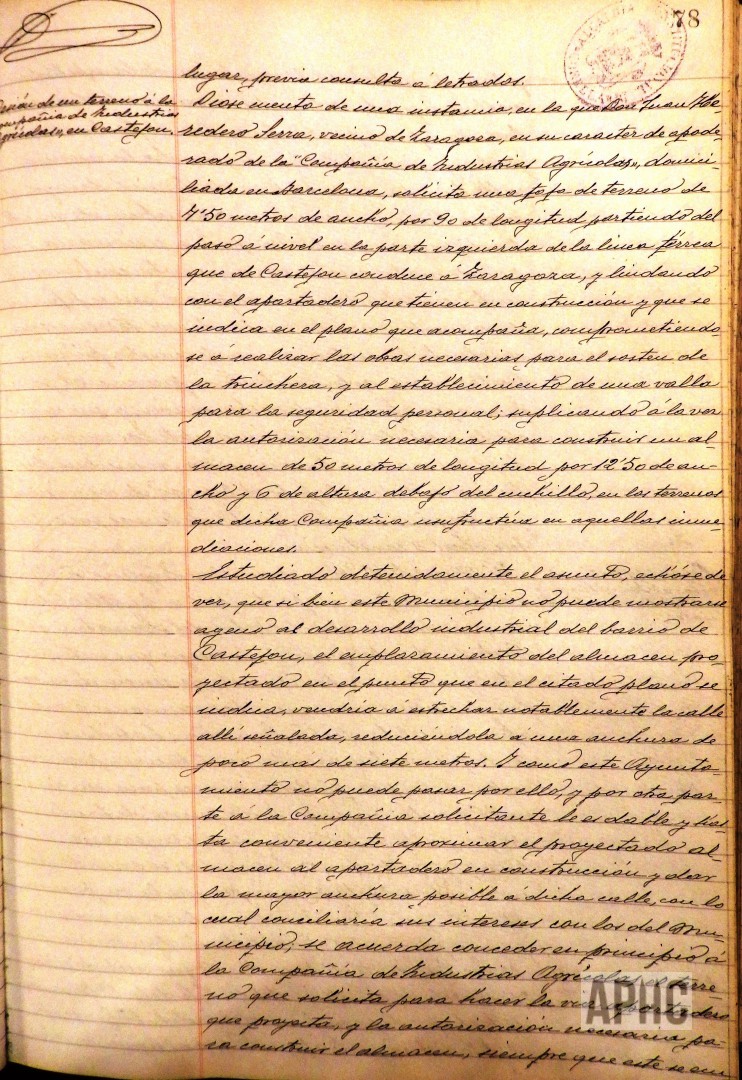 78
lugar, previa consulta á letrados.
Cesión de un terreno á la
Compañía de Industrias
Agrícolas», en Castejon.
Dióse cuenta de una instancia, en la que Don Juan He-
redero Serra, vecino de Zaragoza, en su caracter de apode-
rado de la "Compañia de Industrias Agrícolas", domici-
liada en Barcelona, solicita una faja de terreno de
7'50 metros de ancho, por 90 de longitud partiendo del
paso á nivel en la parte izquierda de la linea férrea
que de Castejon conduce á Zaragoza, y lindando
con el apartadero que tienen en construcción y que se
indica en el plano que acompaña, comprometiendo-
se á realizar las obras necesarias para el sosten de
la trinchera, y al establecimiento de una valla
para la seguridad personal; suplicando á la vez
la autorización necesaria para construir un al-
macen de 50 metros de longitud por 12'50 de an-
cho y 6 de altura debajo del cuchillo, en los terrenos
que dicha Compañia usufructúa en aquellas inme-
diaciones.
Estudiado detenidamente el asunto, echóse de
ver, que si bien este Municipio no puede mostrarse
ageno al desarrollo industrial del barrio de
Castejon, el emplazamiento del almacen pro-
yectado en el punto que en el citado plano se
indica, vendría á estrechar notablemente la calle
alli señalada, reduciéndola á una anchura de
poco mas de siete metros. Y como este Ayunta-
miento no puede pasar por ello, y por otra par-
te á la Compañia solicitante le es dable y has-
ta conveniente aproximar el proyectado al-
macen al apartadero en construcción y dar
la mayor anchura posible á dicha calle, con lo
cual conciliaría sus intereses con los del Mu-
nicipio, se acuerda conceder en principio á
la Compañia de Industrias Agrícolas el terre-
no que solicita para hacer la vía apartadero
que proyecta, y la autorización necesaria pa-
ra construir el almacen, siempre que este se em
APHC